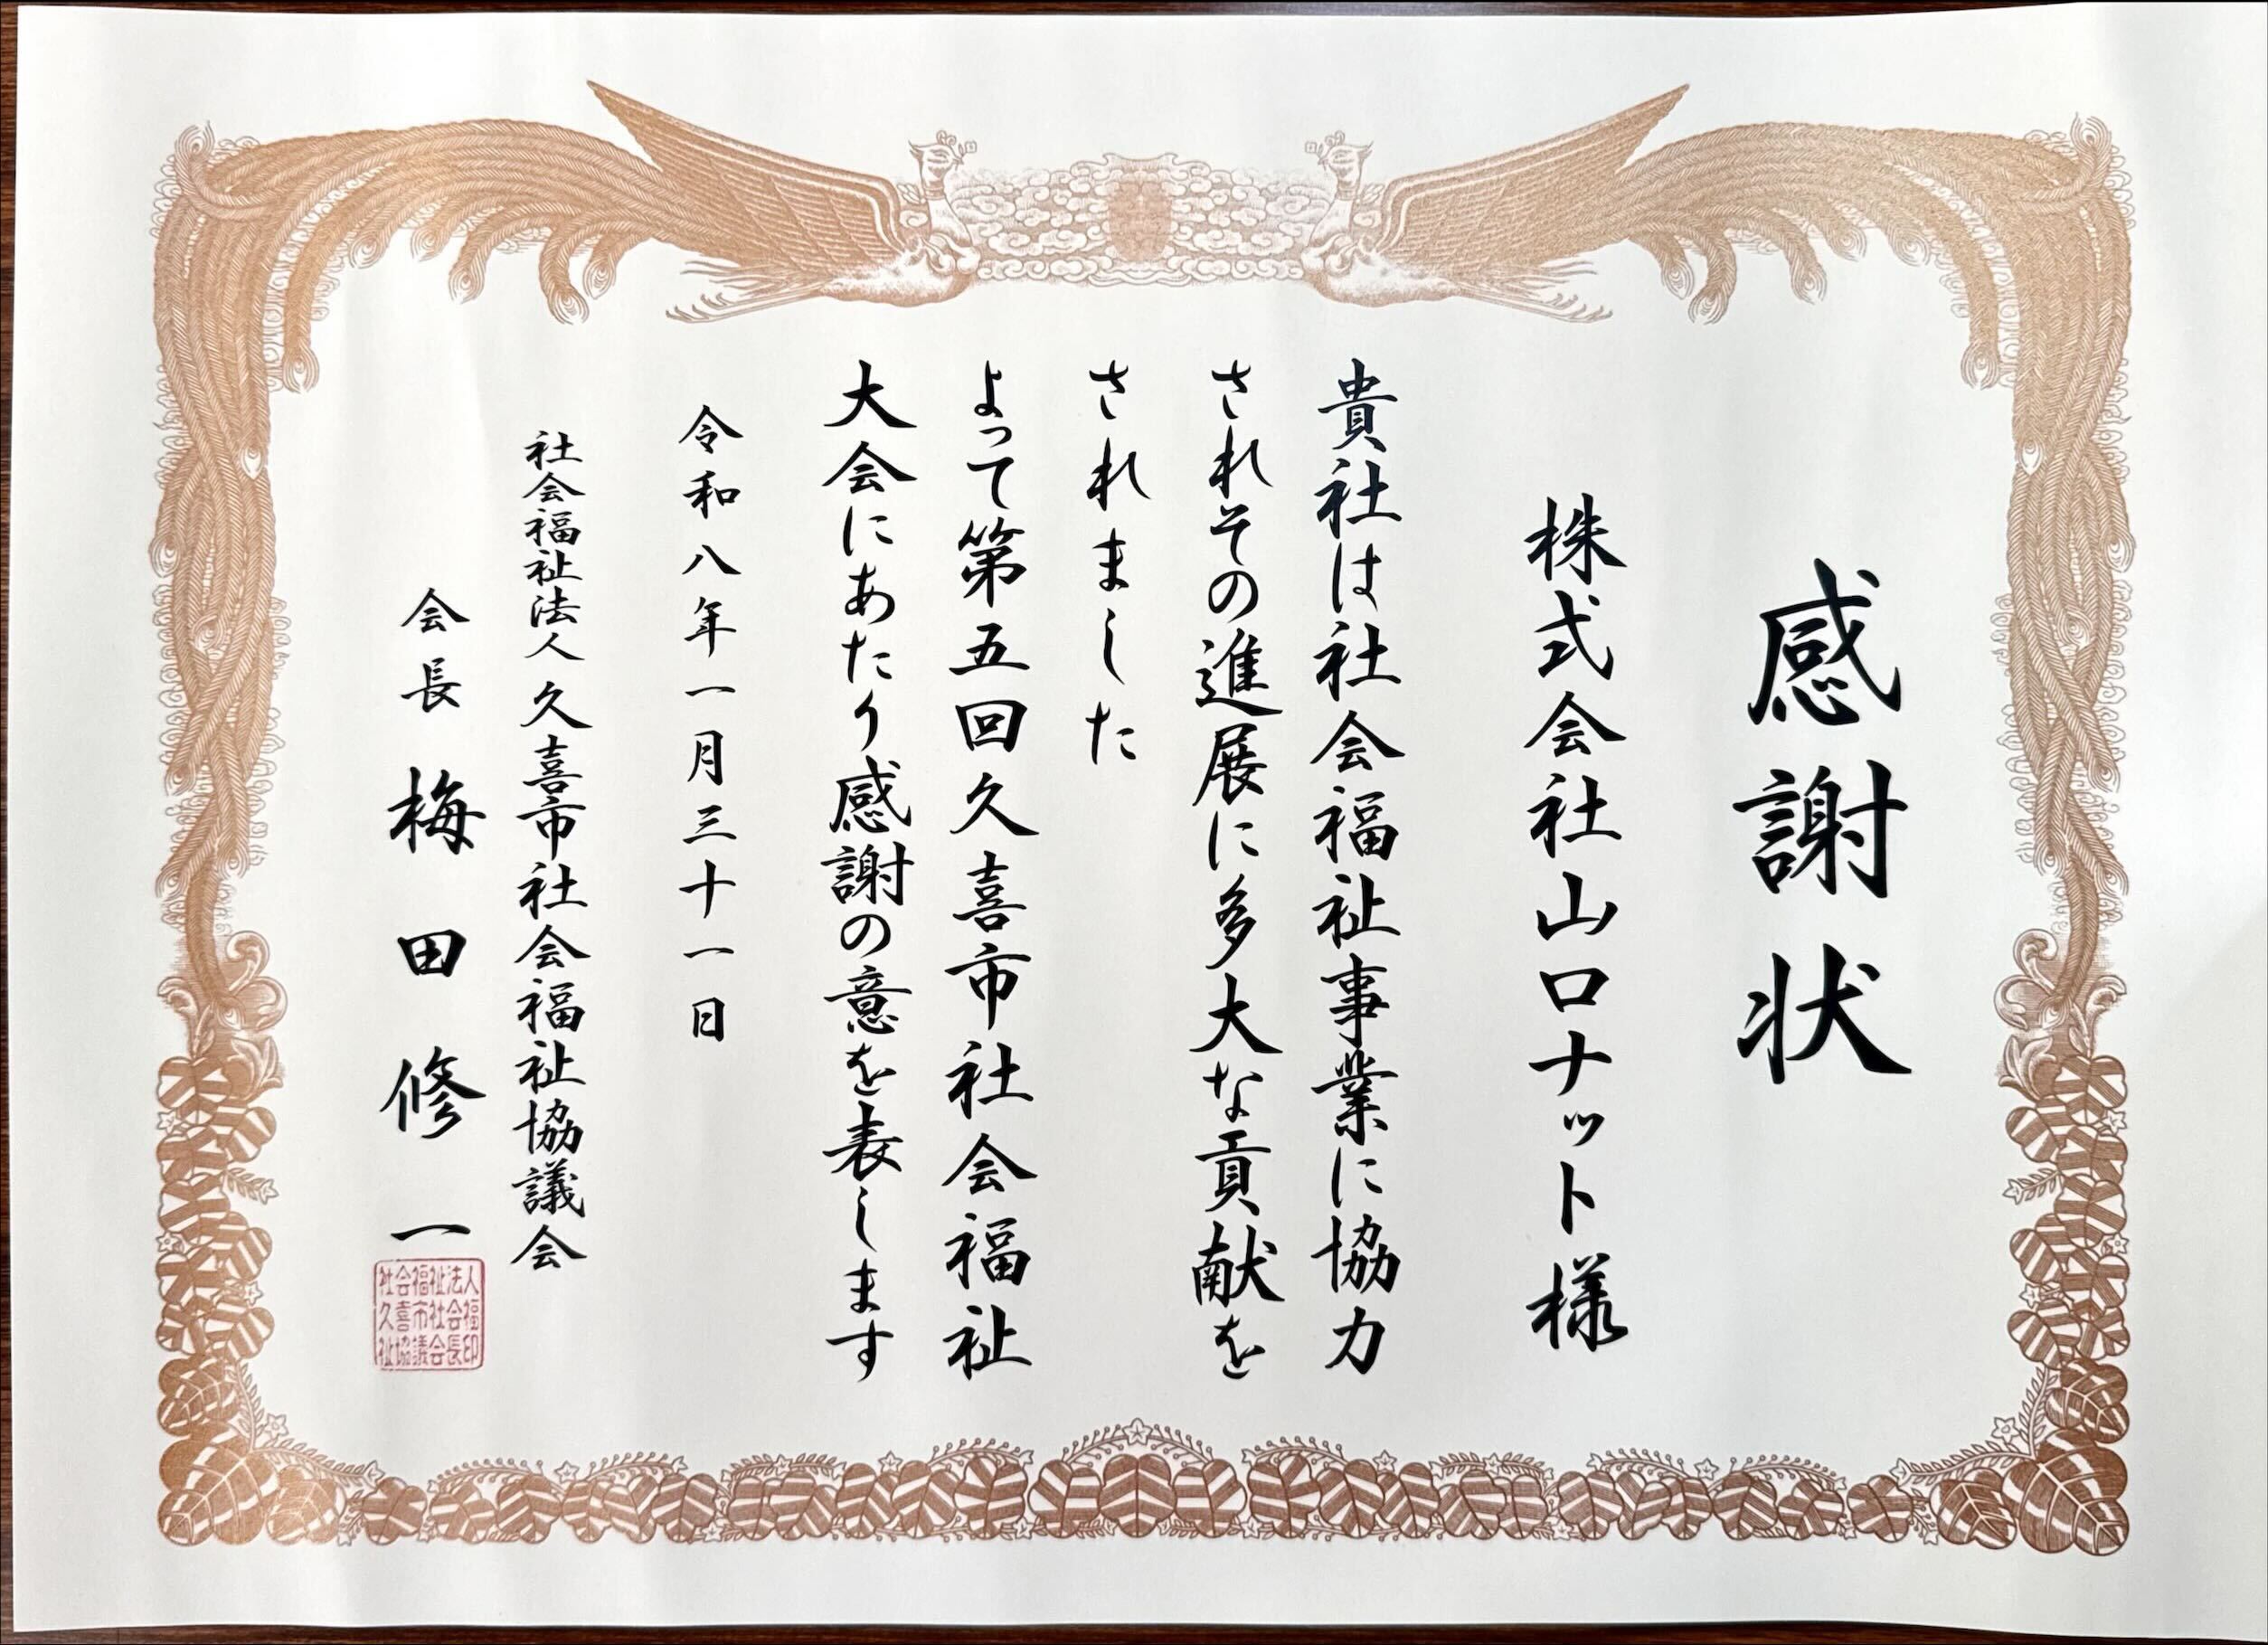 感謝状
株式会社山口ナット様
貴社は社会福祉事業に協力
されその進展に多大な貢献を
されました
よって第五回久喜市社会福祉
大会にあたり感謝の意を表します
令和八年一月三十一日
社会福祉法人久喜市社会福祉協議会
会長 梅田修一
社会福祉法人
久喜市社会福
祉協議会長印